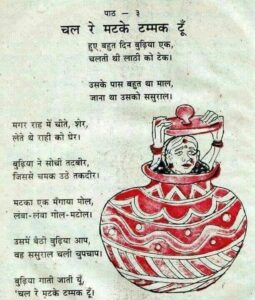 पाठ - ३
चल रे मटके टम्मक टूँ
हुए बहुत दिन बुढ़िया एक,
चलती थी लाठी को टेक।
उसके पास बहुत था माल,
जाना था उसको ससुराल।
मगर राह में चीते, शेर,
लेते थे राही को घेर।
बुढ़िया ने सोची तदबीर,
जिससे चमक उठे तकदीर।
मटका एक मँगाया मोल,
लंबा-लंबा गोल-मटोल।
उसमें बैठी बुढ़िया आप,
वह ससुराल चली चुपचाप।
बुढ़िया गाती जाती यूँ,
'चल रे मटके टम्मक टूँ।